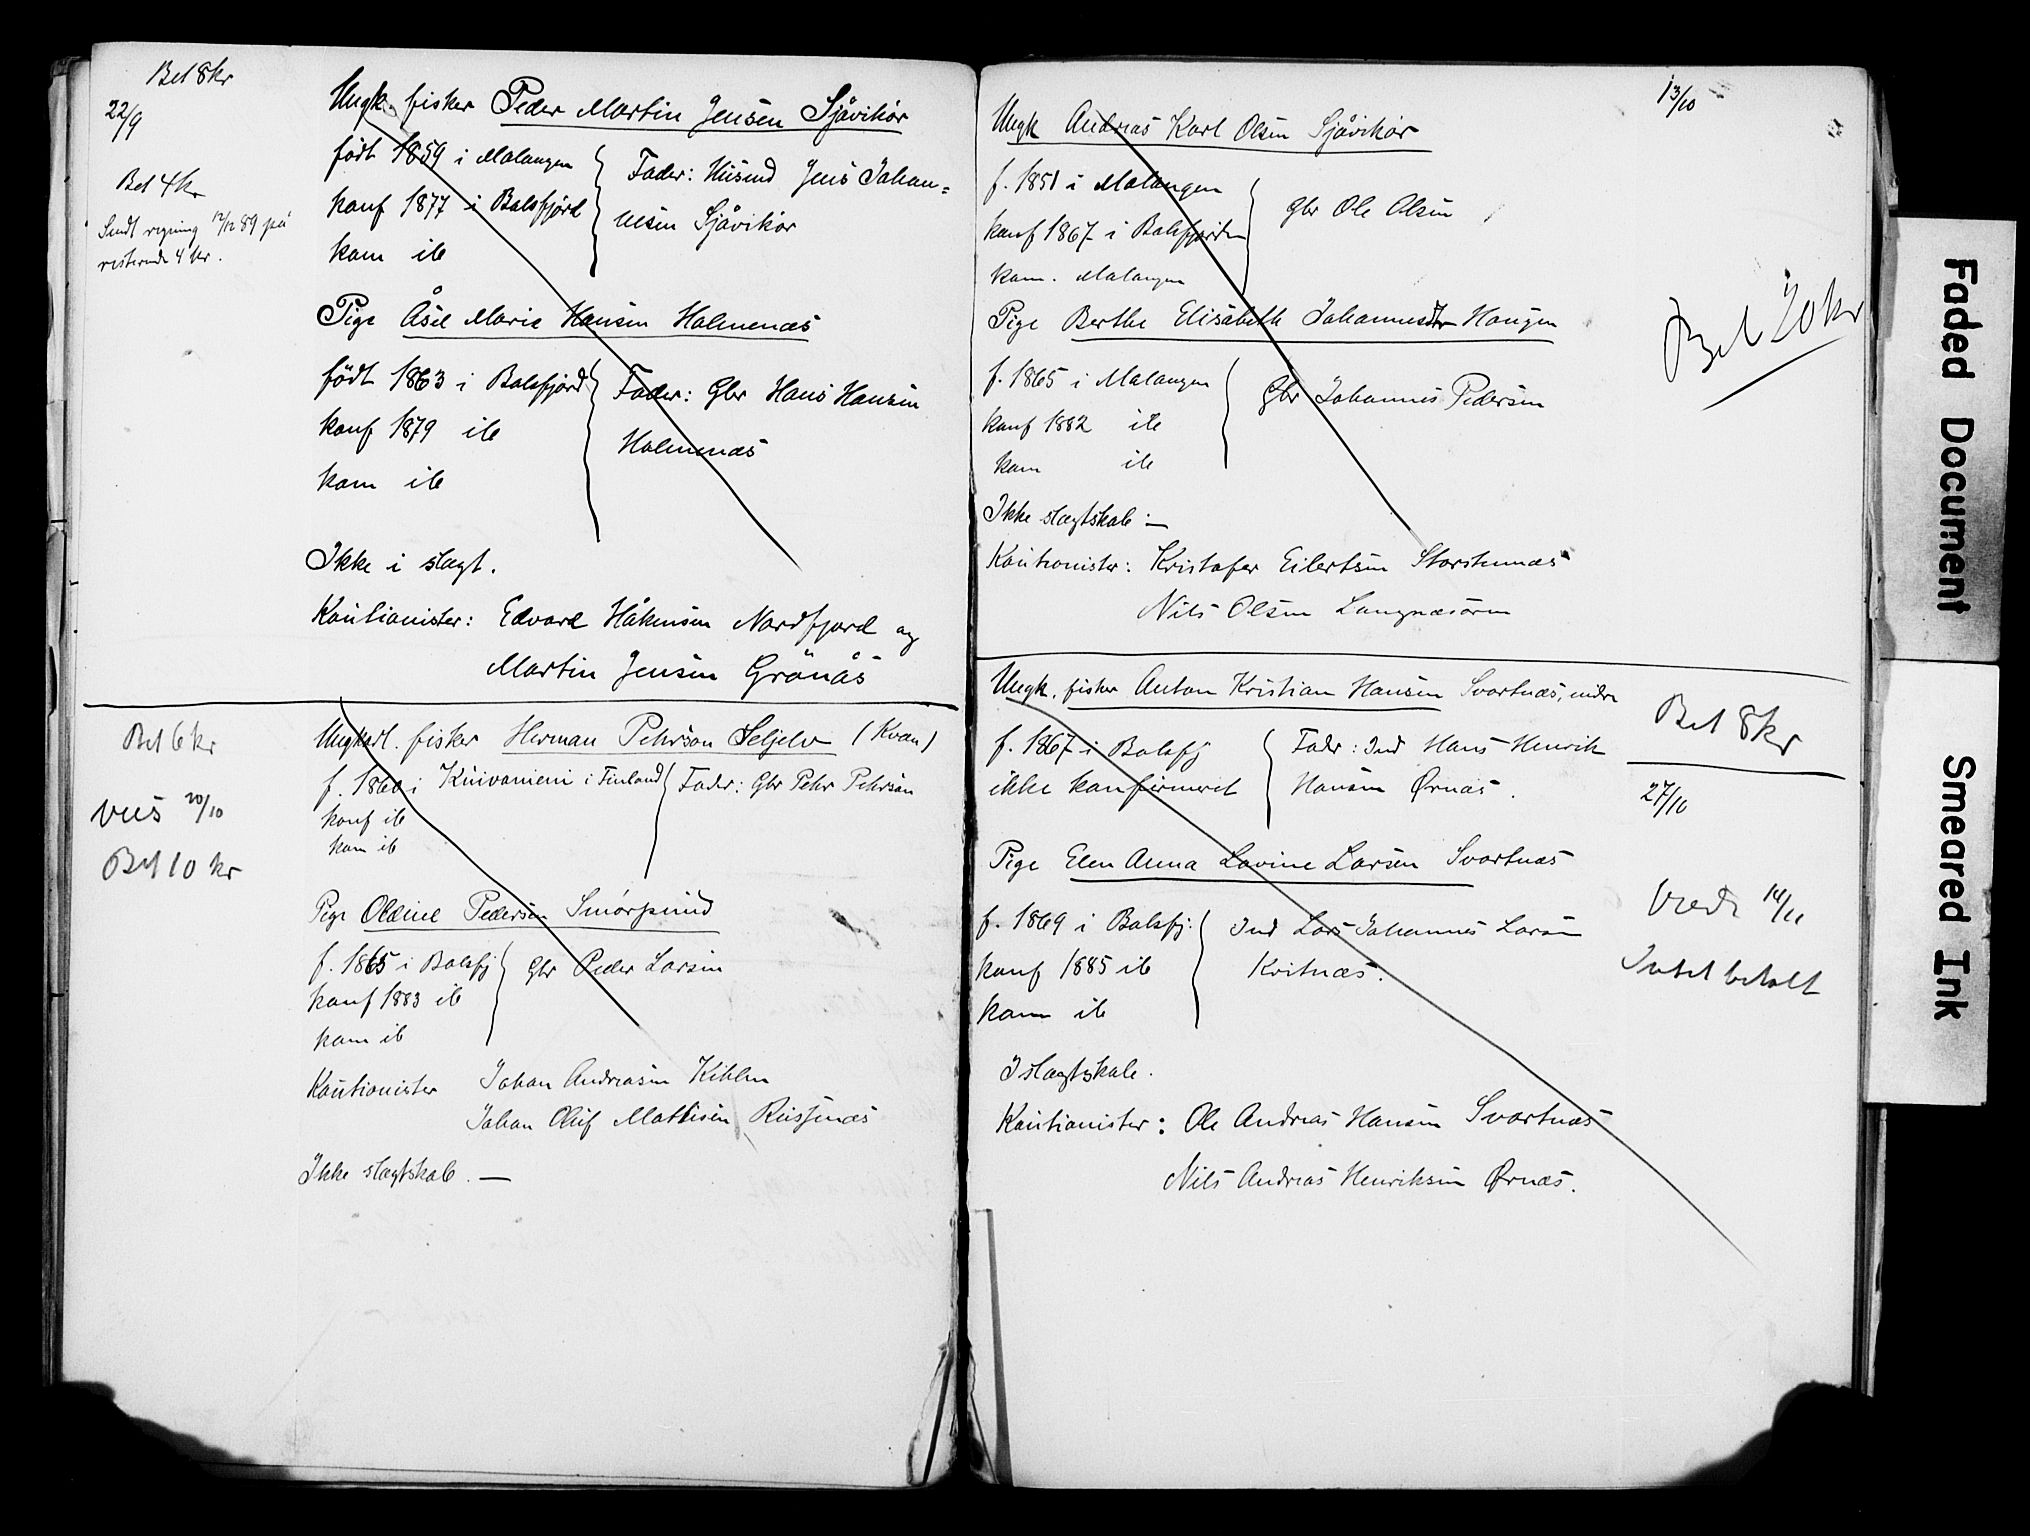 Bet 8 kr
22/9
Bet 4 kr
Sendt regning 12/12 89 på
resterende 4 kr.
Ungk. fisker Peder Martin Jensen Sjåvikør
født 1859 i Malangen
konf 1877 i Balsfjord
kom ib
Fader: Husmd Jens Johan=
nesen Sjåvikør
Pige Åsel Marie Hansen Holmenæs
født 1863 i Balsfjord
konf 1879 ib
kom ib
Fader: Gbr Hans Hansen
Holmenæs
Ikke i slægt.
Kautionister: Edvard Håkensen Nordfjord og
Martin Jensen Grønås
Bet 6 kr
viis 20/10
Bet 10 kr
Ungkarl. fisker Herman Pehrson Seljelv (Kvæn)
f. 1860 i Kuivaniemi i Finland
konf ib
kom ib
Fader: Gbr Pehr Pehrson
Pige Oldine Pedersen Smørpund
f. 1865 i Balsfj
konf 1883 ib
kom ib
Gbr Peder Larsen
Kautionister Johan Andreasen
Johan Oluf Mathisen Russenæs
Ikke slægtskab. —
13/10
Ungk Andreas Karl Olsen Sjåvikør
f. 1851 i Malangen
konf 1867 i Balsfjorden
kom. Malangen
Gbr Ole Olsen
Pige Berthe Elisabeth Johannesdtr Haugen
f. 1865 i Malangen
konf 1882 ib
kom ib
Gbr Johannes Pedersen
Bet 20 kr
Ikke slægtskab —
Kautionister: Kristofer Eilertsen Storstennæs
Nils Olsen Langnæsøren
Ungk. fisker Anton Kristian Hansen Svartnæs, indre
f. 1867 i Balsfj
ikke konfirmeret
Fader: Ind Hans Henrik
Hansen Ørnæs.
Bet 8 kr
27/10
Pige Elen Anna Lovine Larsen Svartnæs
f. 1869 i Balsfj.
konf 1885 ib
kom ib
Ind Lars Johannes Larsen
Kvitnæs.
Viede 14/11
Intet betalt
I slægtskab.
Kautionister: Ole Andreas Hansen Svartnæs
Nils Andreas Henriksen Ørnæs.
Faded Document
Smeared Ink